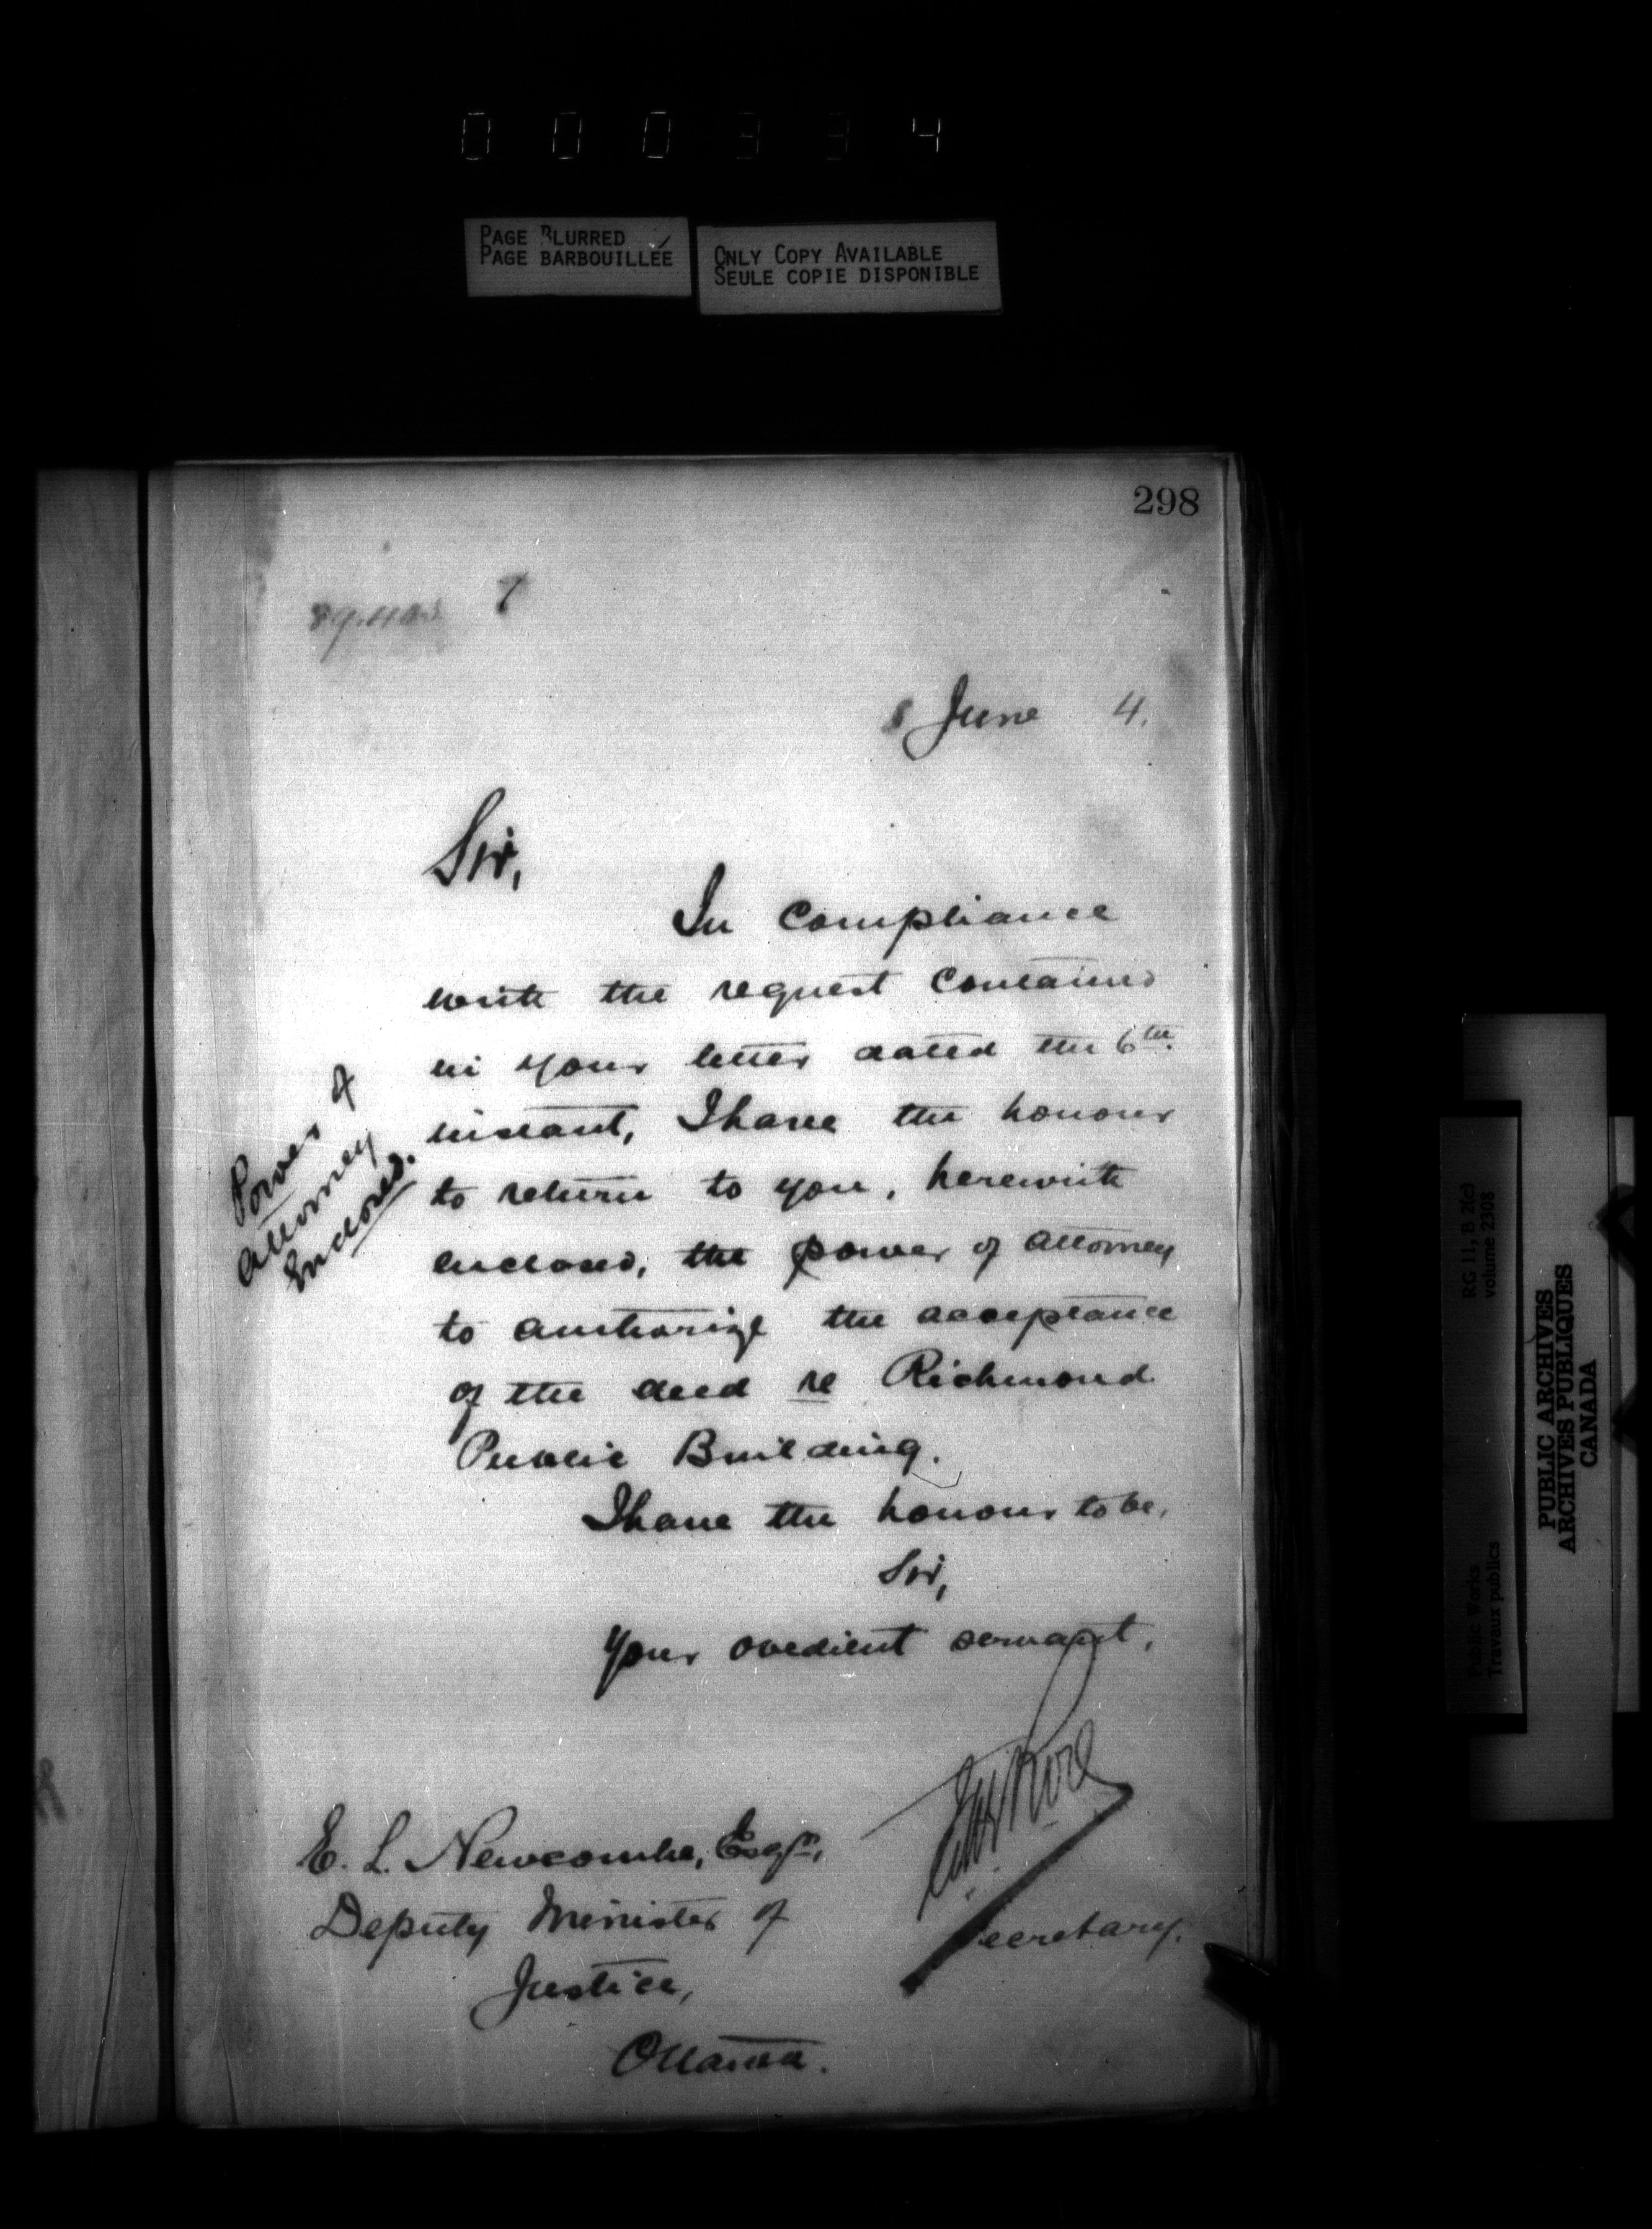 000334
PAGE BLURRED
PAGE BARBOUILLÉE
ONLY COPY AVAILABLE
SEULE COPIE DISPONIBLE
298
8 June 4.
Sir,
In compliance
with the request contained
in your letter dated the 6th
instant, I have the honour
to return to you, herewith
enclosed, the power of attorney
to authorize the acceptance
of the deed re Richmond
Public Building.
I have the honour to be,
Sir,
Your obedient servant,
Secretary.
E. L. Newcombe, Esqre,
Deputy Minister of
Justice,
Ottawa.
Power of
Attorney
Enclosed.
RG 11, B 2(c)
volume 2308
Public Works
Travaux publics
PUBLIC ARCHIVES
ARCHIVES PUBLIQUES
CANADA